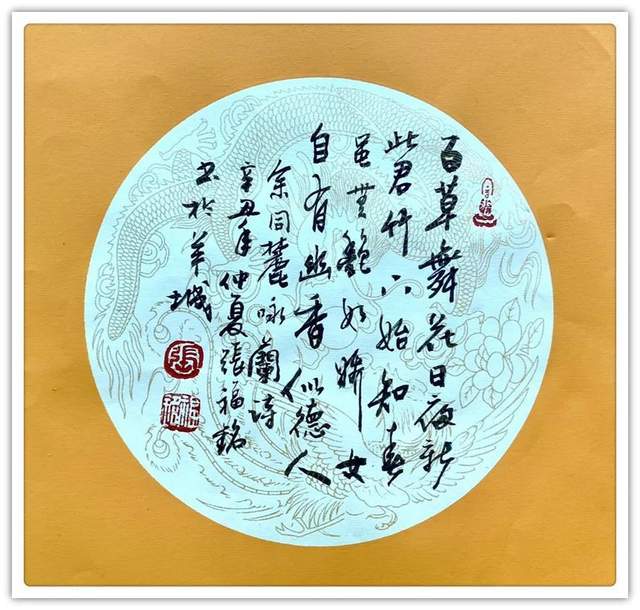 百草舞花日夜新
此君竹下始知春
色無艷如嬌女
自有幽香似德人
余同麓咏蘭詩
辛丑年仲夏張福銘
书於羊城